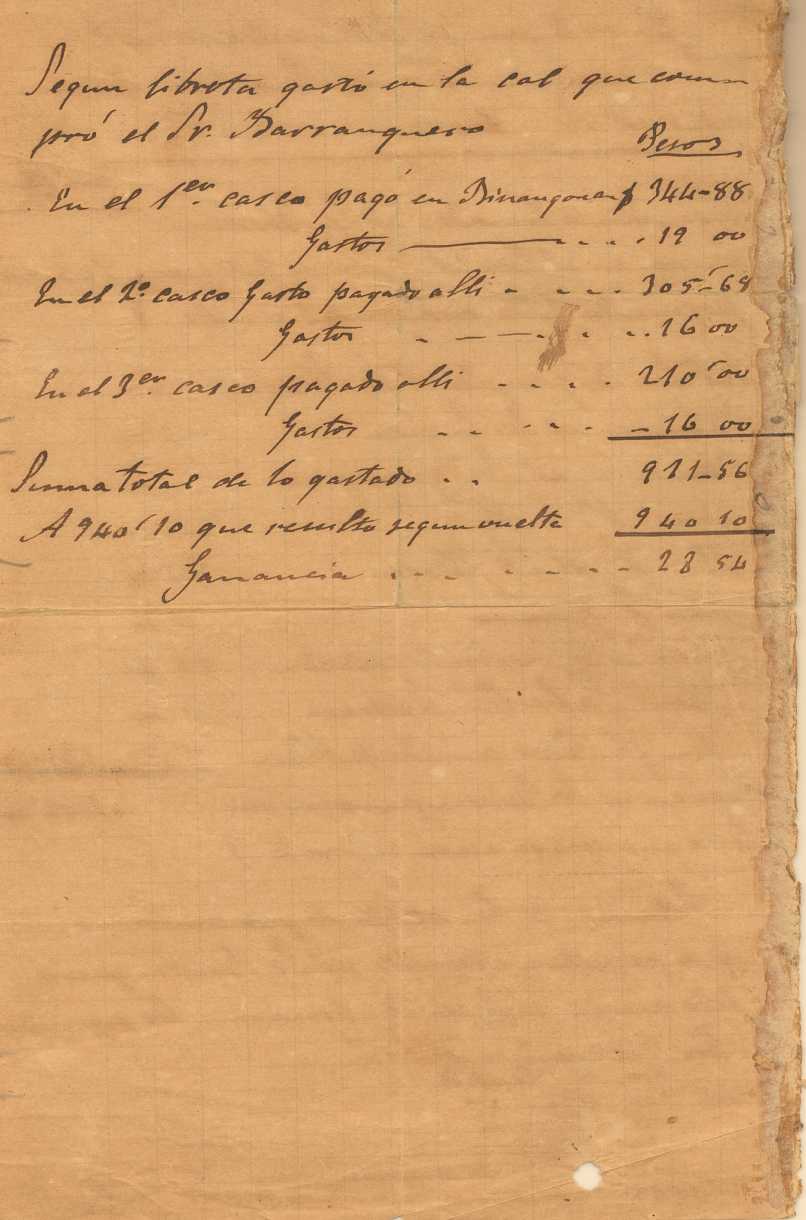 Segun libreta gastó en la cal que com-
pró el Sr. Barranquero
Pesos
En el 1er. casco pagó en Binangonan $ 344-88
Gastos . . . . 19 00
En el 2º. casco Gasto pagado alli - . . . . 305-68
Gastos . - - . . . . 16 00
En el 3er. casco pagado alli - . . . 210'00
Gastos . . . . . - 16 00
Suma total de lo gastado . . 911-56
A 940'10 que resulto segun vuelta 940 10
Ganancia . . . . . . . - 28 54